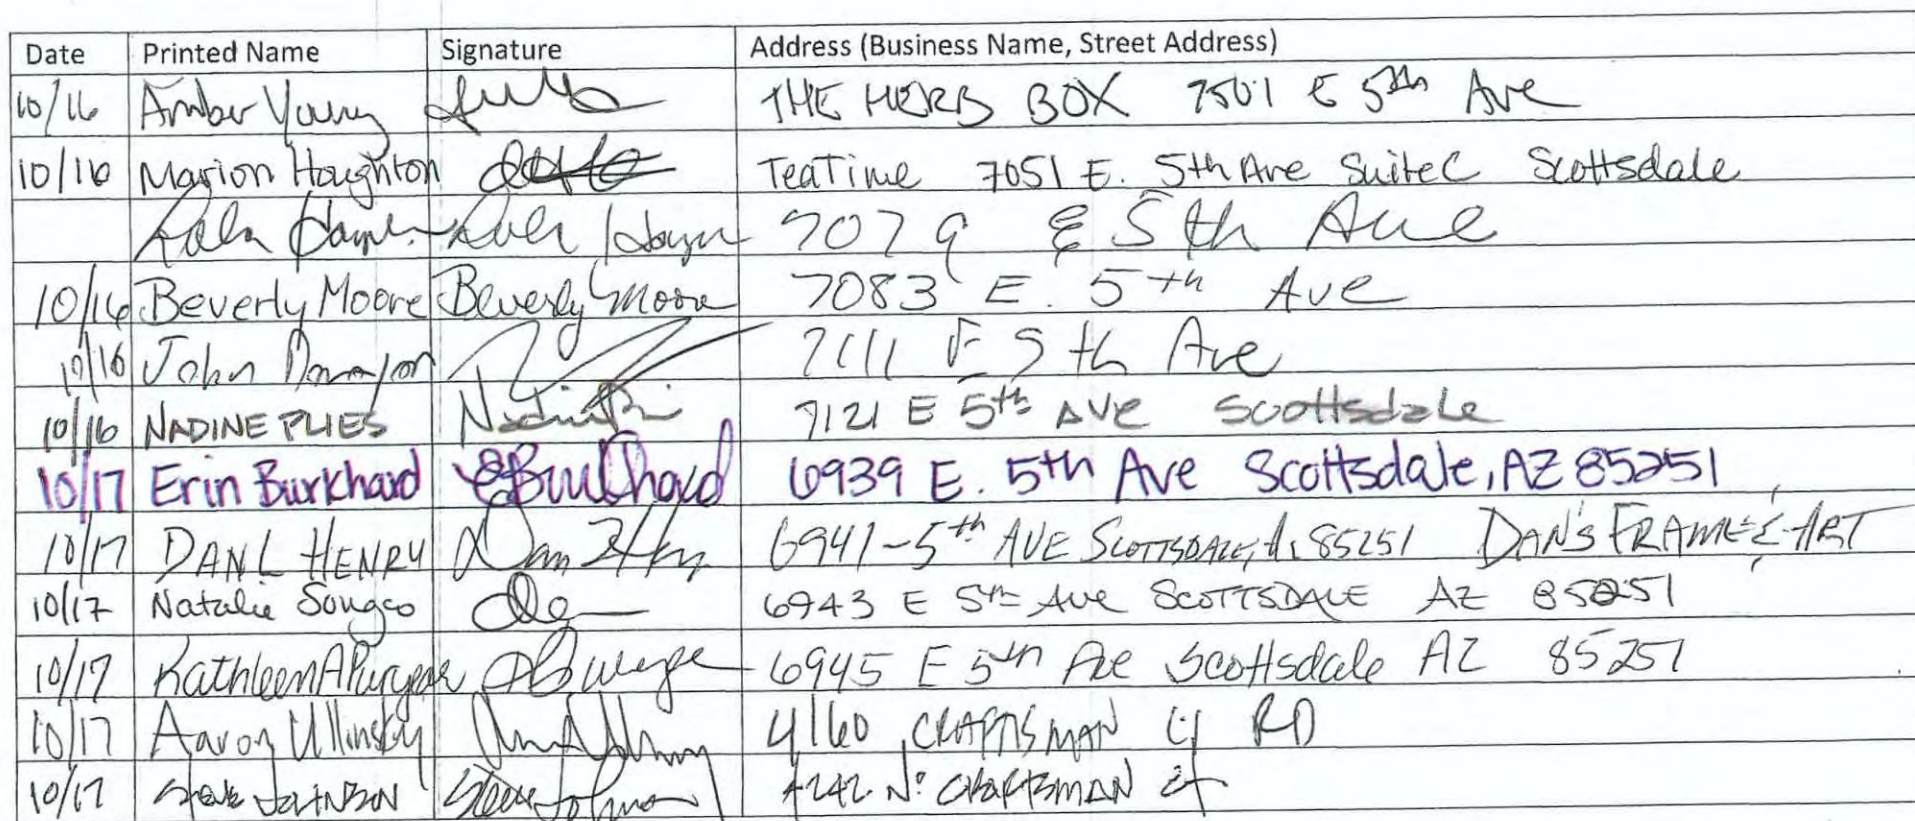 Date Printed Name Signature Address (Business Name, Street Address)
10/16 Amber Young THE HERB BOX 7501 E 5th Ave
10/16 Marion Houghton TeaTime 7051 E. 5th Ave Suite C Scottsdale
7079 E 5th Ave
10/16 Beverly Moore Beverly Moore 7083 E. 5th Ave
10/16 John 7111 E 5th Ave
10/16 NADINE PLIES 7121 E 5th AVE Scottsdale
10/17 Erin Burkhard EBurkhard 6939 E. 5th Ave Scottsdale, AZ 85251
10/17 DAN L HENRY 6941-5th AVE SCOTTSDALE, Az 85251 DAN'S FRAME & ART
10/17 Natalie Songco 6943 E 5th Ave SCOTTSDALE AZ 85251
10/17 Kathleen A Puryear 6945 E 5th Ave Scottsdale AZ 85251
10/17 Aaron Ullinsky 4160 CRAFTSMAN RD
10/17 Steve JOHNSON Steve Johnson 4242 No CRAFTSMAN ct